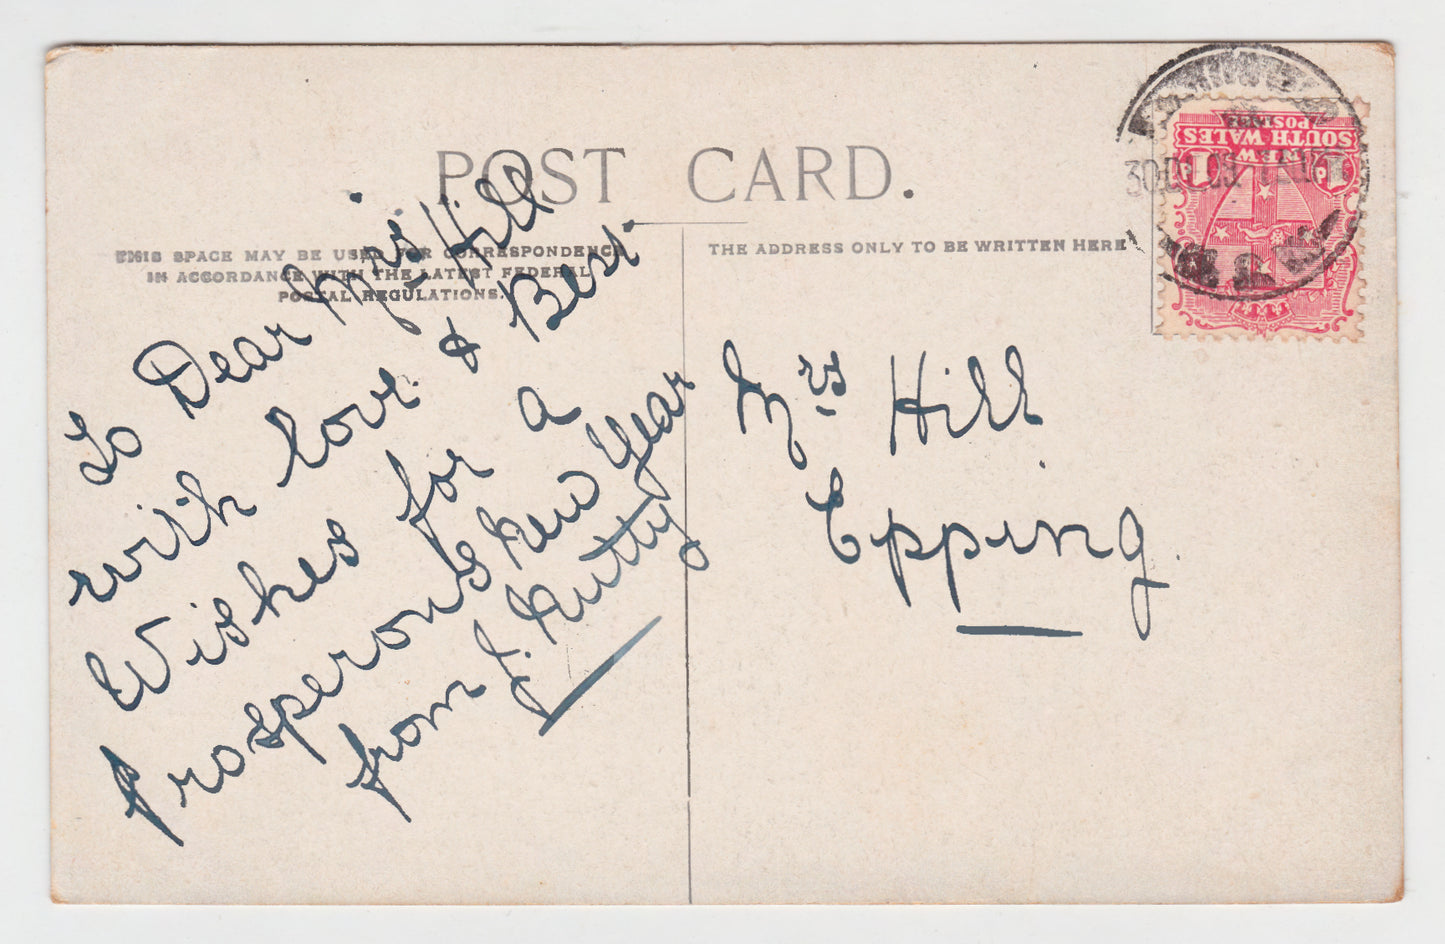 POST CARD.
THIS SPACE MAY BE USED FOR CORRESPONDENCE
IN ACCORDANCE WITH THE LATEST FEDERAL
POSTAL REGULATIONS.
THE ADDRESS ONLY TO BE WRITTEN HERE
To Dear Mrs Hill
with love & Best
Wishes for a
Prosperous New Year
from J. Nutty
Mrs Hill
Epping.
NEW
SOUTH WALES
POSTAGE
1D 1D